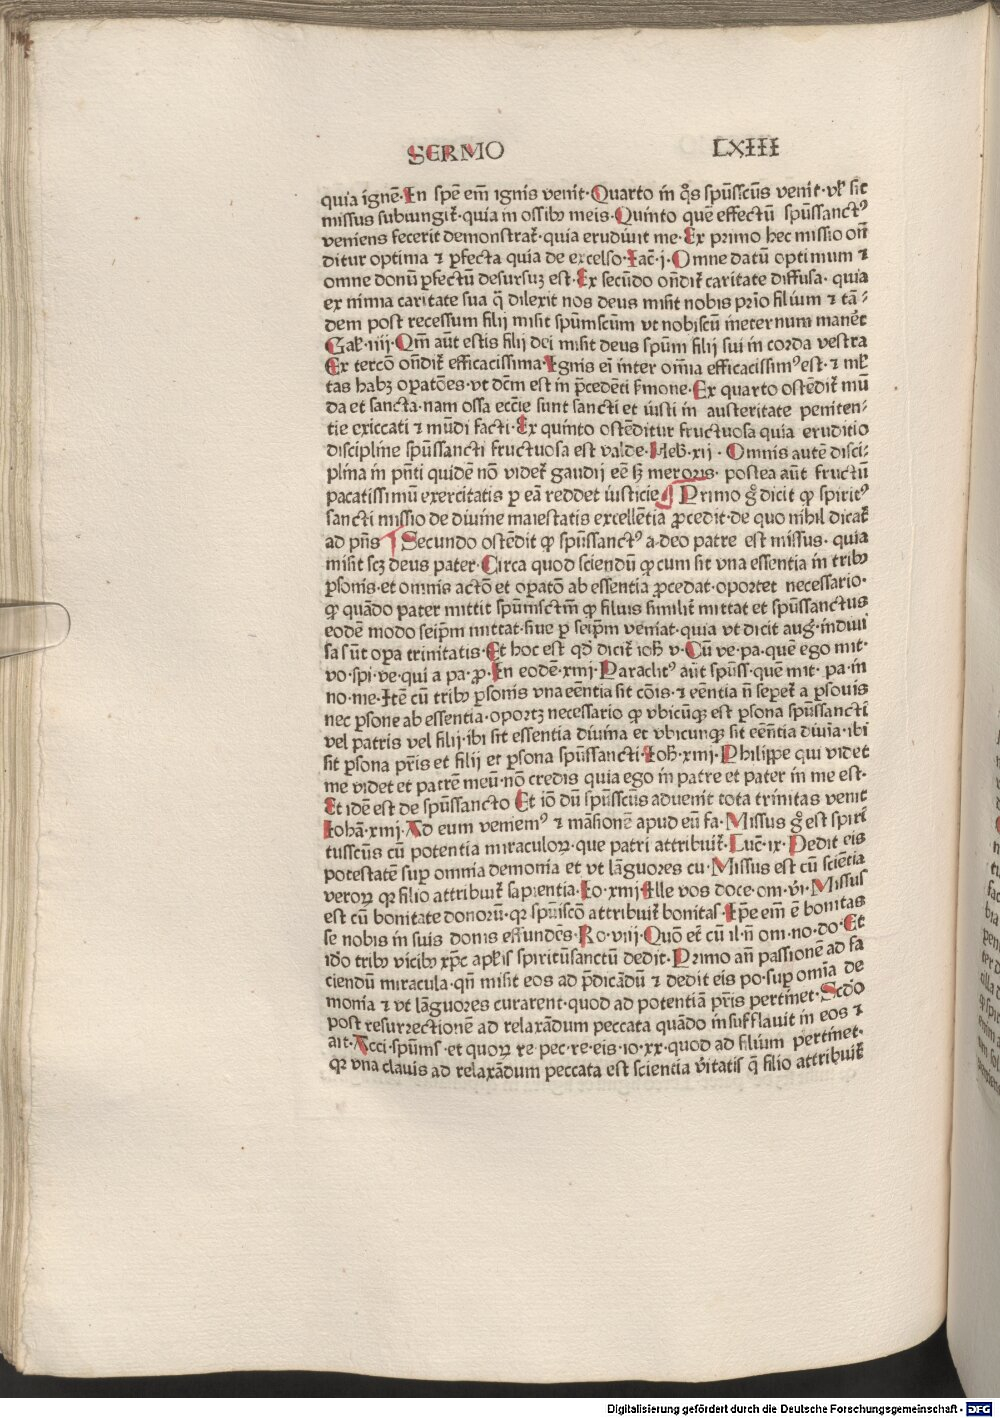 SERMO LXIII
quia ignē·In spē em̄ ignis venit·Quarto in q̄s spūsscūs venit·vƀ sic
missus subiungit᷑·quia in ossibꝰ meis·Quinto quē effectū spūssanctꝰ
veniens fecerit demonstrat᷑·quia erudiuit me·Ex primo hec missio on̄
ditur optima ⁊ ꝑfecta quia de excelso·Iac̄·j·Omne datū optimum ⁊
omne donū ꝑfectū desursuꝫ est·Ex secūdo on̄dit᷑ caritate diffusa·quia
ex nimia caritate sua q̄ dilexit nos deus misit nobis prīo filium ⁊ tā⸗
dem post recessum filij misit spūmscūm vt nobiscū ineternum manēt
Gal᷑·iiij·Qm̄ aūt estis filij dei misit deus spūm filij sui in corda vestra
Ex tercōo on̄dit᷑ efficacissima·Ignis ei inter om̄ia efficacissimꝰ est·⁊ ml᷑
tas habꝫ oꝑatōes·vt dcm̄ est in p̄cedēti s̄mone·Ex quarto ostēdit᷑ mū
da et sancta·nam ossa eccīe sunt sancti et iusti in austeritate peniten⸗
tie exiccati ⁊ mūdi facti·Ex quinto ostēditur fructuosa quia eruditio
discipline spūssancti fructuosa est valde·Heb᷑·xij·Omnis autē disci⸗
plina in pn̄ti quidē nō videt᷑ gaudij eē sꝫ meroris·postea aūt fructū
pacatissimū exercitatis ꝑ eā reddet iusticie ¶ Primo g̊ dicit ꝙ spiritꝰ
sancti missio de diuine maiestatis excellētia ꝓcedit·de quo nihil dicat᷑
ad pn̄s ¶ Secundo ostēdit ꝙ spūssanctꝰ a deo patre est missus·quia
misit scꝫ deus pater·Circa quod sciendū ꝙ cum sit vna essentia in tribꝰ
ꝑsonis·et omnis actō et oꝑatō ab essentia ꝓcedat·oportet necessario·
ꝙ quādo pater mittit spūmsctm̄ ꝙ filius similit᷑ mittat et spūssanctus
eodē modo seip̄m mittat·siue ꝑ seip̄m veniat·quia vt dicit aug᷑·indiui
sa sūt oꝑa trinitatis·Et hoc est qd̄ dicit᷑ ioh̄ v·Cū ve·pa·quē ego mit·
vo·spi·ve·qui a pa·ꝓ·In eodē·xiiij·Paraclitꝰ aūt spūss·quē mit·pa·in
no·me·Itē cū tribꝰ ꝑsonis vna eēntia sit cōis·⁊ eēntia n̄ seꝑet᷑ a ꝑsonis
nec ꝑsone ab essentia·oportꝫ necessario ꝙ vbicūqꝫ est ꝑsona spūssancti
vel patris vel filij·ibi sit essentia diuina et vbicunqꝫ sit eēntia diuīa·ibi
sit ꝑsona pr̄is et filij et ꝑsona spūssancti·Ioh̄·xiiij·Philippe qui videt
me videt et patrē meū·nō credis quia ego in patre et pater in me est·
Et idē est de spūssancto Et iō dū spūsscūs aduenit tota trinitas venit
Iohā·xiiij·Ad eum veniemꝰ ⁊ māsionē apud eū fa·Missus g̊ est spiri
tusscūs cū potentia miraculoꝝ·que patri attribuit᷑·Luc̄·ix·Dedit eis
potestatē suꝑ omnia demonia et vt lāguores cu·Missus est cū sciētia
veroꝝ ꝙ filio attribuit᷑ sapientia·Io·xiiij·Ille vos doce·om·v̄i·Missus
est cū bonitate donorū·qꝛ spūiscō attribuit᷑ bonitas·Ip̄e em̄ ē bonitas
se nobis in suis donis effundēs·Ro·viij·Quō et᷑ cū il·n̄ om·no·do·Et
ido tribꝰ vicibꝰ xp̄c apl̄is spiritūsanctū dedit·Primo an̄ passionē ad fa
ciendū miracula·qn̄ misit eos ad p̄dicādū ⁊ dedit eis po·suꝑ omīa de
monia ⁊ vt lāguores curarent·quod ad potentiā pr̄is pertinet·Scd̄o
post resurrectionē ad relaxādum peccata quādo insufflauit in eos ⁊
ait·Acci·spūms·et quoꝝ re·pec·re·eis·io·xx·quod ad filium pertinet·
qꝛ vna clauis ad relaxādum peccata est scientia v̄itatis q̄ filio attribuit᷑
Digitalisierung gefördert durch die Deutsche Forschungsgemeinschaft - DFG